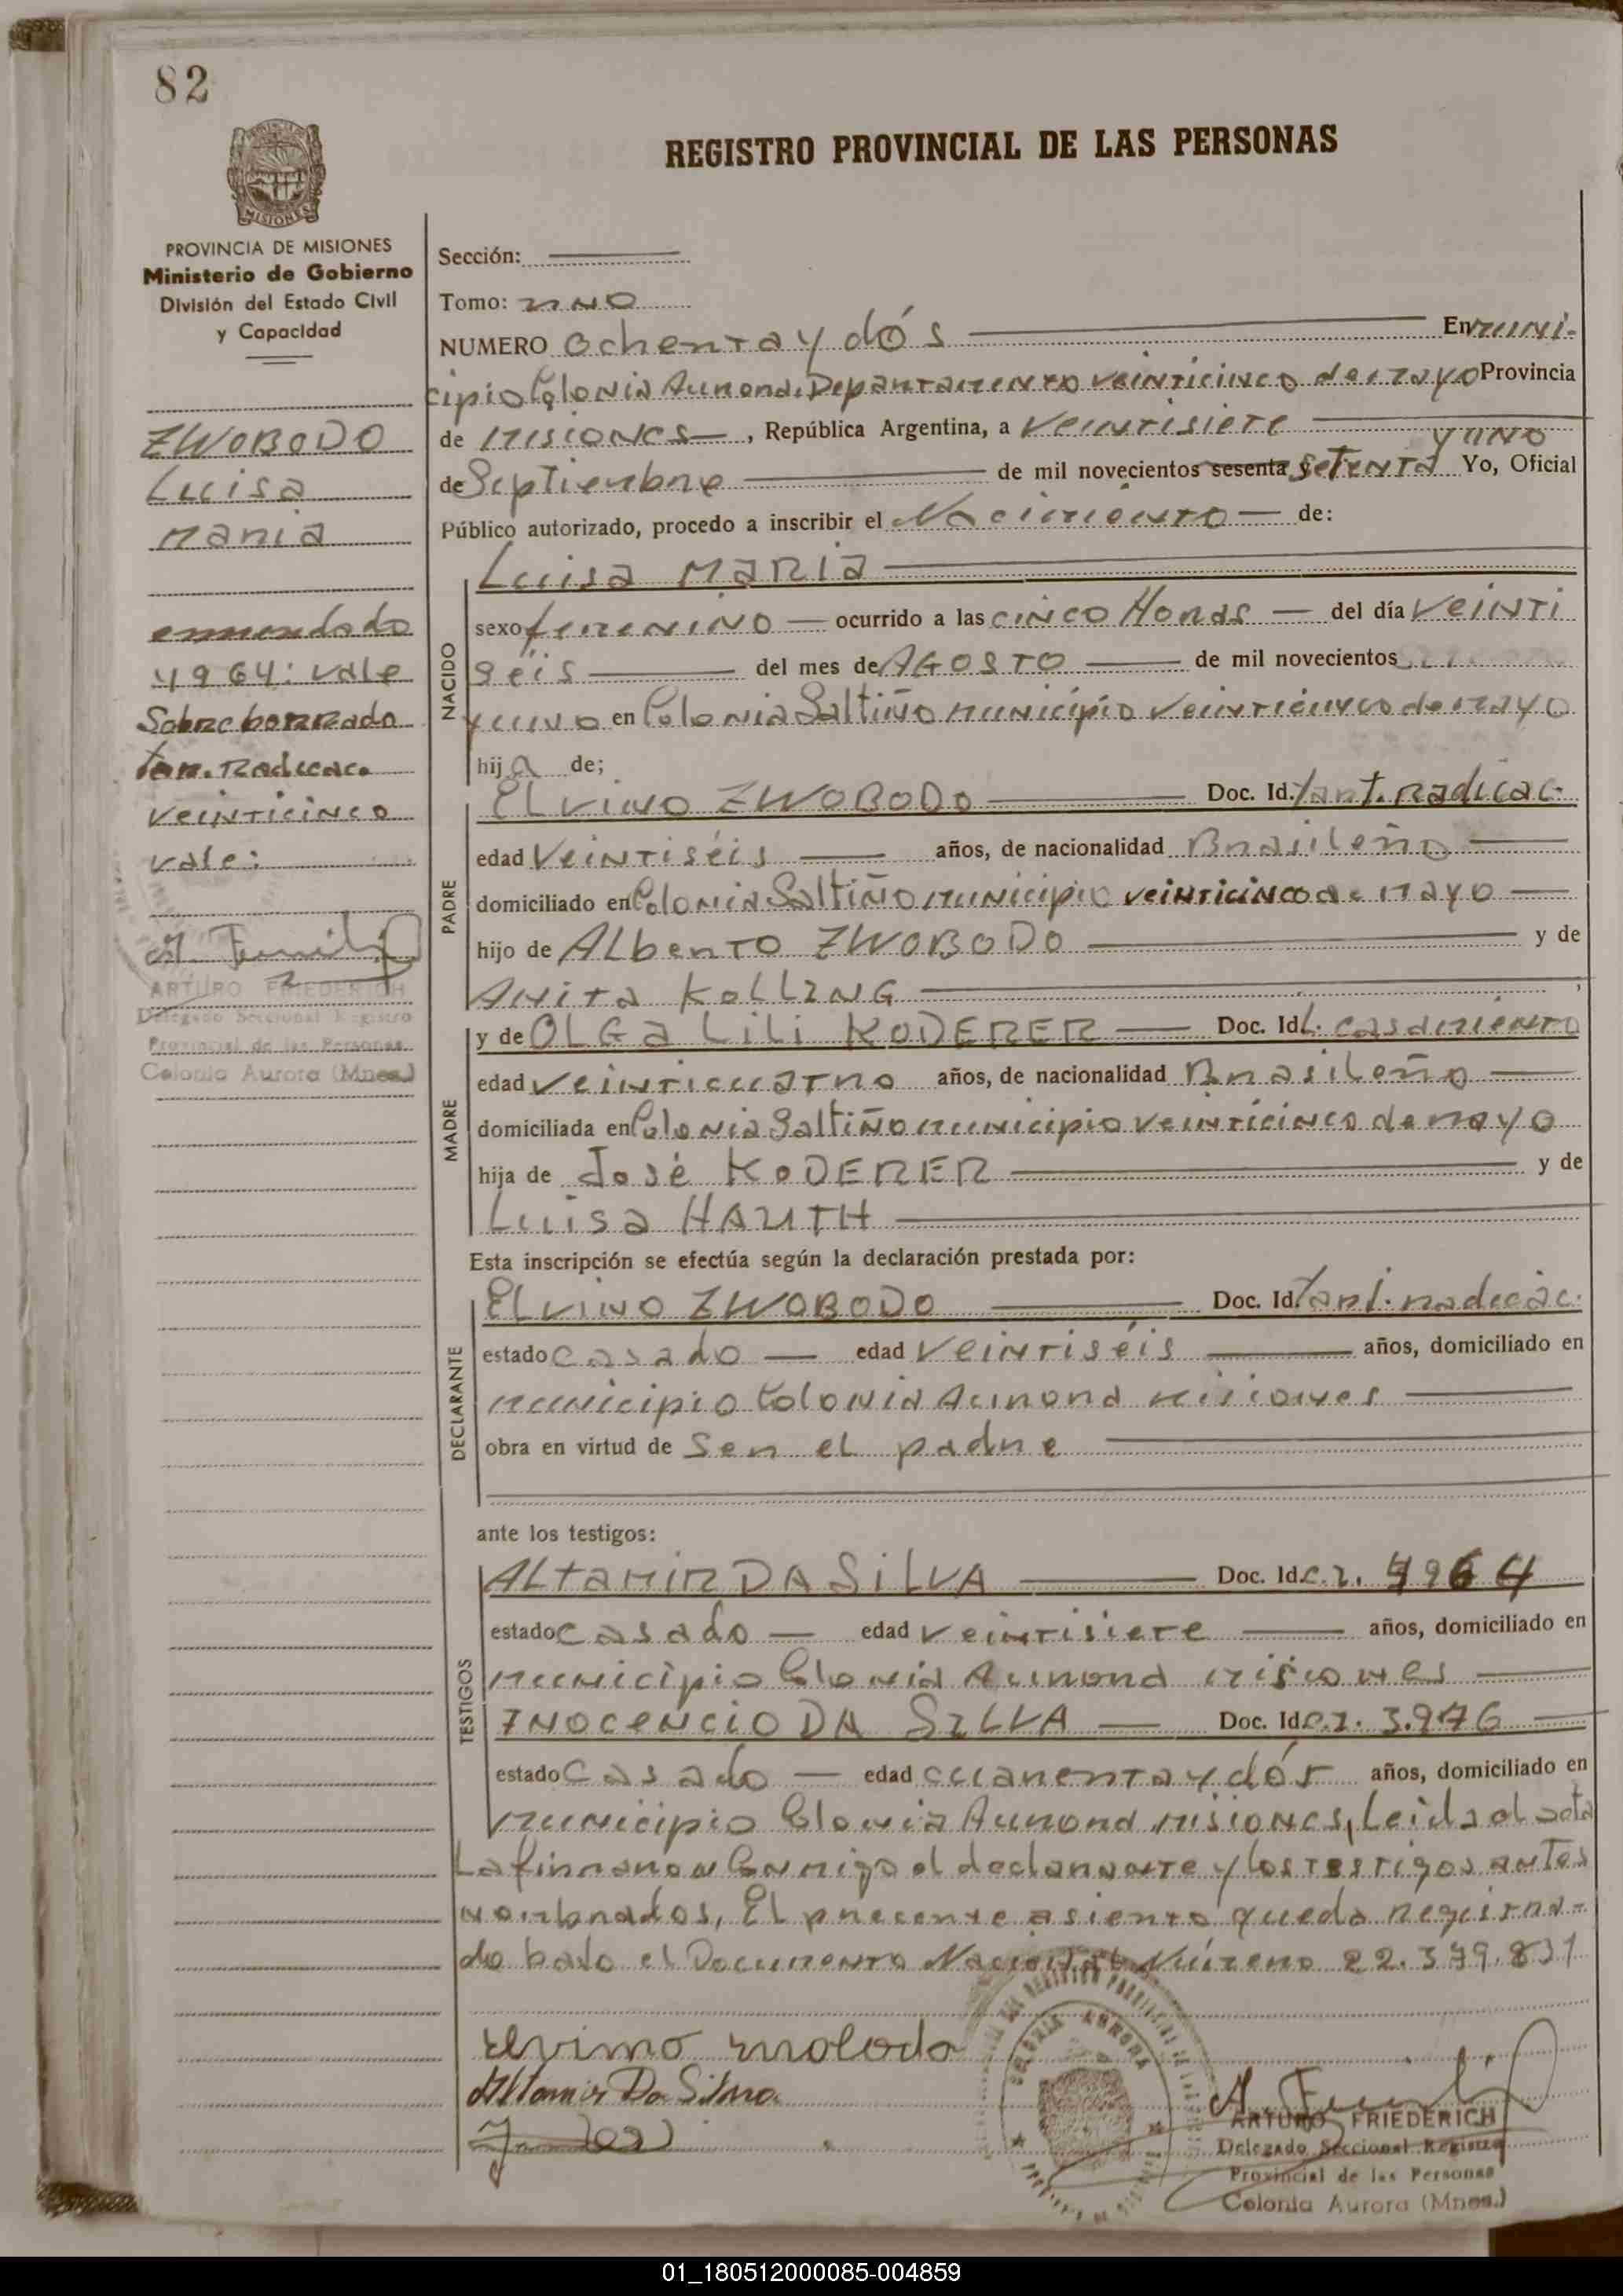 82
REGISTRO PROVINCIAL DE LAS PERSONAS
MISIONES
PROVINCIA DE MISIONES
Ministerio de Gobierno
División del Estado Civil
y Capacidad
ZWOBODO
Luisa
Maria
enmendado
4964: vale
Sobre borrado
tar. Radicac.
veinticinco
vale:
A. Friederich
ARTURO FRIEDERICH
Delegado Seccional Registro
Provincial de las Personas
Colonia Aurora (Mnes.)
Sección:
Tomo: uno
NUMERO Ochenta y dós En muni-
cipio Colonia Aurora, Departamento veinticinco de mayo Provincia
de Misiones, República Argentina, a veintisiete
y uno
de Septiembre de mil novecientos sesenta y setenta Yo, Oficial
Público autorizado, procedo a inscribir el Nacimiento de:
Luisa Maria
NACIDO
sexo femenino ocurrido a las cinco Horas del día veinti
séis del mes de Agosto de mil novecientos
y uno en Colonia Saltiño municipio veinticinco de mayo
hija de;
PADRE
Elvino ZWOBODO Doc. Id. Tart. Radicac.
edad veintiséis años, de nacionalidad Brasileño
domiciliado en Colonia Saltiño municipio veinticinco de mayo
hijo de Alberto ZWOBODO y de
Anita KOLLING
MADRE
y de OLGA Lili KODERER Doc. Id L. casamiento
edad veinticuatro años, de nacionalidad Brasileño
domiciliada en Colonia Saltiño municipio veinticinco de mayo
hija de José KODERER y de
Luisa HAUTH
Esta inscripción se efectúa según la declaración prestada por:
DECLARANTE
Elvino ZWOBODO Doc. Id. Tart. radicac.
estado casado edad veintiséis años, domiciliado en
municipio Colonia Aurora Misiones
obra en virtud de ser el padre
ante los testigos:
TESTIGOS
Altamir DA SILVA Doc. Id C.I. 4964
estado casado edad veintisiete años, domiciliado en
municipio Colonia Aurora Misiones
Inocencio DA SILVA Doc. Id C.I. 3.976
estado casado edad cuarenta y dós años, domiciliado en
municipio Colonia Aurora Misiones, Leida el acta
La firmaron Conmigo el declarante y los testigos antes
nombrados, El precente asiento queda registra-
do bajo el Documento Nacional Número 22.379.831
Altamir Da Silva
COLONIA AURORA
A. Friederich
ARTURO FRIEDERICH
Delegado Seccional Registro
Provincial de las Personas
Colonia Aurora (Mnes.)
01_180512000085-004859